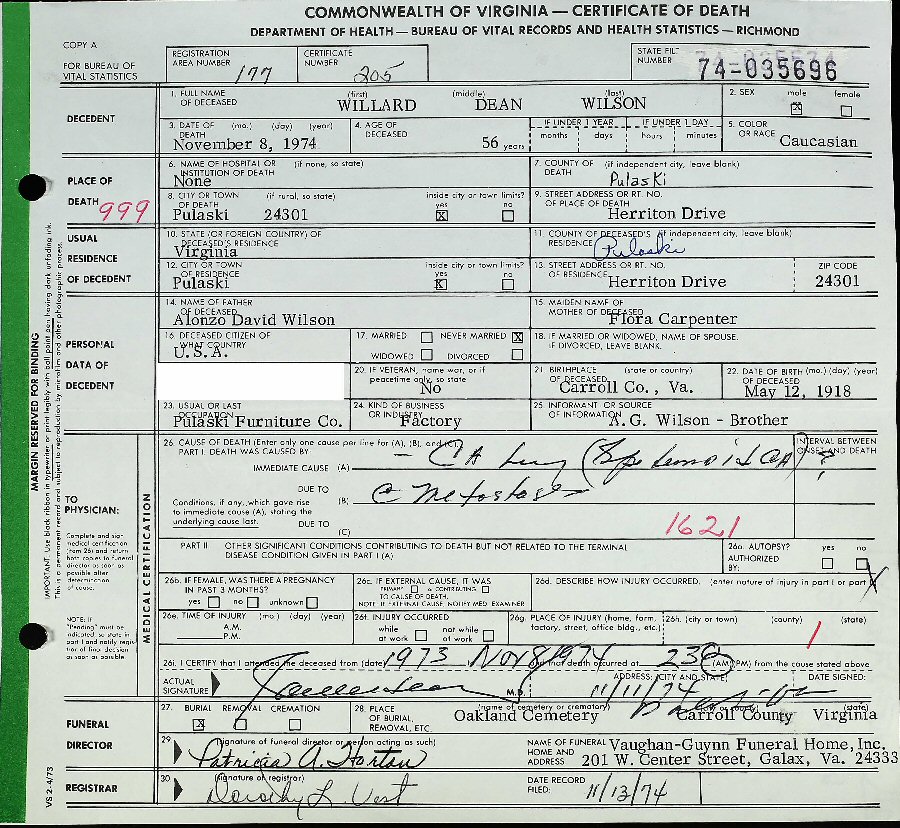 COMMONWEALTH OF VIRGINIA — CERTIFICATE OF DEATH
DEPARTMENT OF HEALTH — BUREAU OF VITAL RECORDS AND HEALTH STATISTICS — RICHMOND
COPY A
FOR BUREAU OF VITAL STATISTICS
REGISTRATION AREA NUMBER 177
CERTIFICATE NUMBER 205
STATE FILE NUMBER 74-035696
DECEDENT
1. FULL NAME OF DECEASED (first) (middle) (last)
WILLARD DEAN WILSON
2. SEX male ☒ female ☐
3. DATE OF DEATH (mo.) (day) (year)
November 8, 1974
4. AGE OF DECEASED 56 years
IF UNDER 1 YEAR months days
IF UNDER 1 DAY hours minutes
5. COLOR OR RACE Caucasian
PLACE OF DEATH 999
6. NAME OF HOSPITAL OR INSTITUTION OF DEATH (if none, so state)
None
7. COUNTY OF DEATH (if independent city, leave blank)
Pulaski
8. CITY OR TOWN OF DEATH (if rural, so state) inside city or town limits? yes ☒ no ☐
Pulaski 24301
9. STREET ADDRESS OR RT. NO. OF PLACE OF DEATH
Herriton Drive
USUAL RESIDENCE OF DECEDENT
10. STATE (OR FOREIGN COUNTRY) OF DECEASED'S RESIDENCE
Virginia
11. COUNTY OF DECEASED'S RESIDENCE (if independent city, leave blank)
Pulaski
12. CITY OR TOWN OF RESIDENCE inside city or town limits? yes ☒ no ☐
Pulaski
13. STREET ADDRESS OR RT. NO. OF RESIDENCE
Herriton Drive
ZIP CODE 24301
PERSONAL DATA OF DECEDENT
14. NAME OF FATHER OF DECEASED
Alonzo David Wilson
15. MAIDEN NAME OF MOTHER OF DECEASED
Flora Carpenter
16. DECEASED CITIZEN OF WHAT COUNTRY
U.S.A.
17. MARRIED ☐ NEVER MARRIED ☒
WIDOWED ☐ DIVORCED ☐
18. IF MARRIED OR WIDOWED, NAME OF SPOUSE. IF DIVORCED, LEAVE BLANK.
20. IF VETERAN, name war, or if peacetime only, so state
No
21. BIRTHPLACE OF DECEASED (state or country)
Carroll Co., Va.
22. DATE OF BIRTH (mo.) (day) (year) OF DECEASED
May 12, 1918
23. USUAL OR LAST OCCUPATION
Pulaski Furniture Co.
24. KIND OF BUSINESS OR INDUSTRY
Factory
25. INFORMANT OR SOURCE OF INFORMATION
A.G. Wilson - Brother
MARGIN RESERVED FOR BINDING
IMPORTANT. Use black ribbon in typewriter or print legibly with ball point pen having dark unfading ink.
This is a permanent record and subject to reproduction by microfilm and other photographic process.
TO PHYSICIAN:
Complete and sign medical certification (item 26) and return both copies to funeral director as soon as possible after determination of cause.
NOTE: If "Pending" must be indicated so state in part I and notify registrar of final decision as soon as possible.
MEDICAL CERTIFICATION
26. CAUSE OF DEATH (Enter only one cause per line for (A), (B), and (C).
PART I. DEATH WAS CAUSED BY
INTERVAL BETWEEN ONSET AND DEATH
IMMEDIATE CAUSE (A) CA Lung (Epidermoid CA) ?
Conditions, if any, which gave rise to immediate cause (A), stating the underlying cause last.
DUE TO (B) c Metastases
DUE TO (C)
1621
PART II OTHER SIGNIFICANT CONDITIONS CONTRIBUTING TO DEATH BUT NOT RELATED TO THE TERMINAL DISEASE CONDITION GIVEN IN PART I (A)
26a. AUTOPSY? yes ☐ no ☐
AUTHORIZED BY:
26b. IF FEMALE, WAS THERE A PREGNANCY IN PAST 3 MONTHS?
yes ☐ no ☐ unknown ☐
26c. IF EXTERNAL CAUSE, IT WAS
PRIMARY ☐ or CONTRIBUTING ☐ TO CAUSE OF DEATH.
NOTE: IF EXTERNAL CAUSE, NOTIFY MED. EXAMINER
26d. DESCRIBE HOW INJURY OCCURRED. (enter nature of injury in part I or part
26e. TIME OF INJURY (mo.) (day) (year)
A.M.
P.M.
26f. INJURY OCCURRED
while at work ☐ not while at work ☐
26g. PLACE OF INJURY (home, farm, factory, street, office bldg., etc.)
26h. (city or town) (county) (state)
1
26i. I CERTIFY that I attended the deceased from (date) 1973 Nov 8, 1974 that death occurred at 230 (AM) (PM) from the cause stated above
ACTUAL SIGNATURE M.D.
ADDRESS: (CITY AND STATE) DATE SIGNED:
11/11/74
FUNERAL DIRECTOR
27. BURIAL ☒ REMOVAL ☐ CREMATION ☐
28. PLACE OF BURIAL, REMOVAL, ETC. (name of cemetery or crematory) (county) (state)
Oakland Cemetery Carroll County Virginia
29. (signature of funeral director or person acting as such)
Patricia A. Horton
NAME OF FUNERAL HOME AND ADDRESS Vaughan-Guynn Funeral Home, Inc.
201 W. Center Street, Galax, Va. 24333
REGISTRAR
30. (signature of registrar)
Dorothy L. Vest
DATE RECORD FILED: 11/13/74
VS 2-4/73